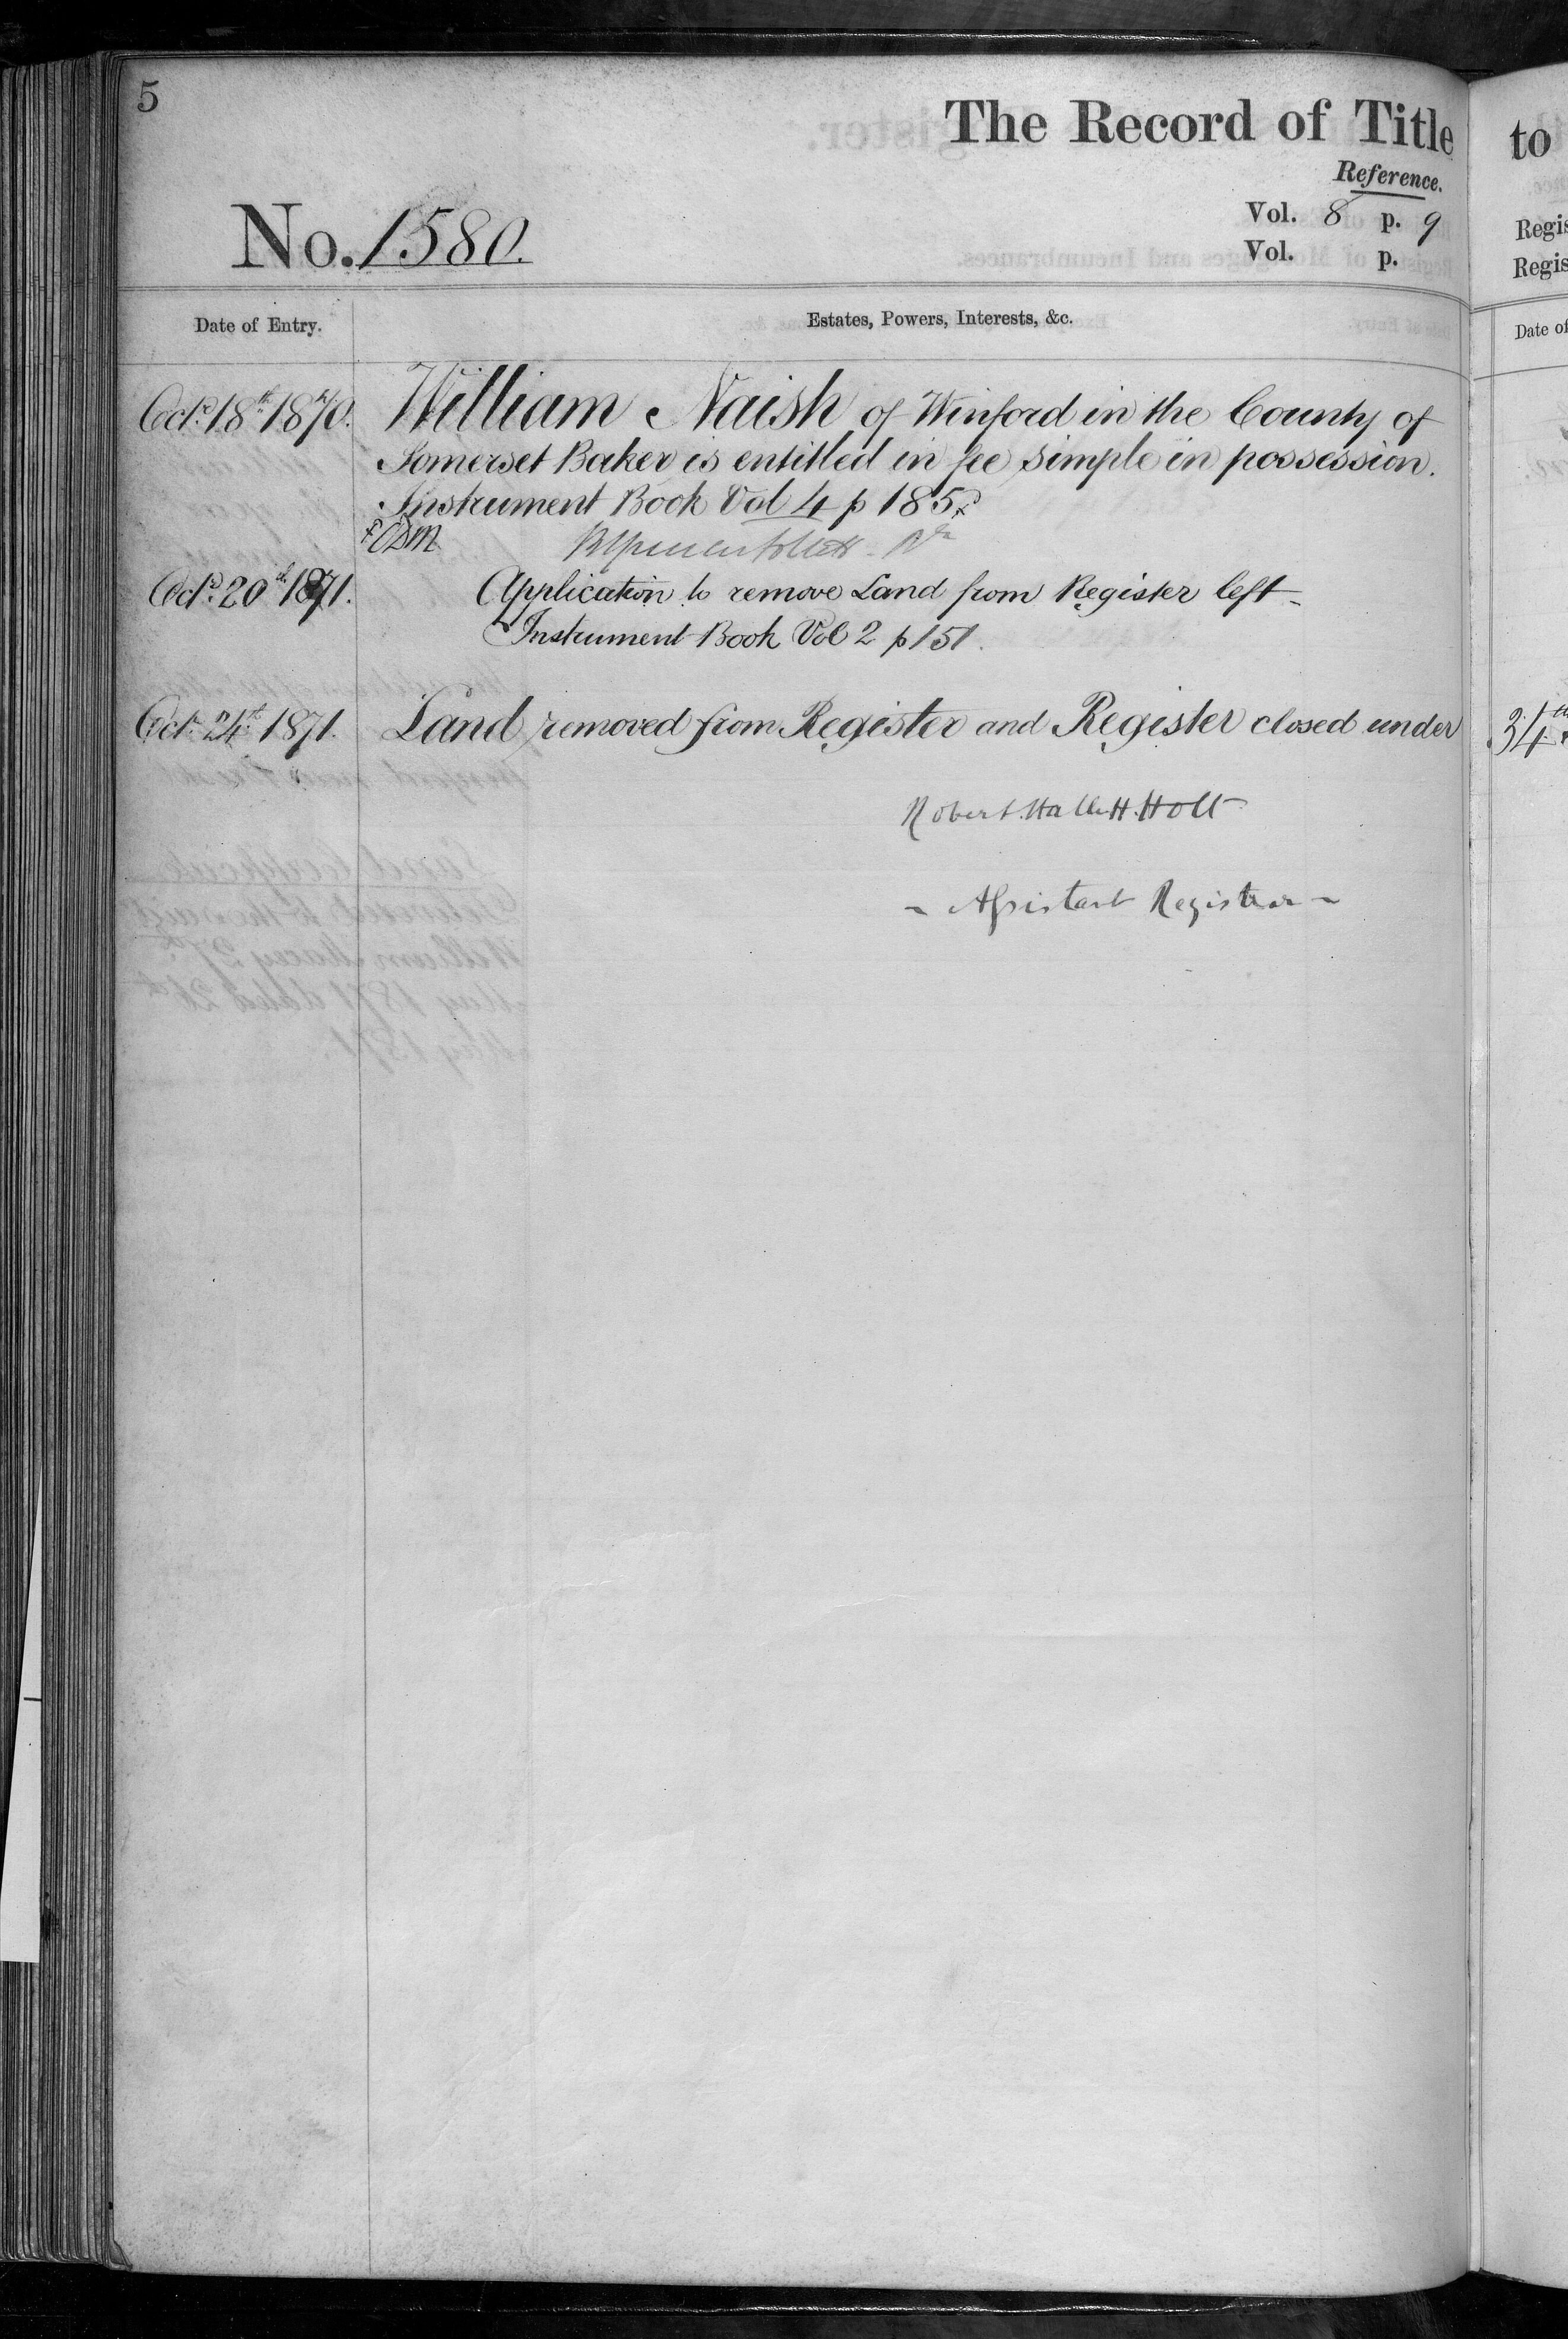 5
The Record of Title
Reference.
Vol. 8 p. 9
Vol. p.
No. 1580.
Date of Entry.
Estates, Powers, Interests, &c.
Oct.r 18th 1870. William Naish of Winford in the County of
Somerset Baker is entitled in fee simple in possession.
Instrument Book Vol 4 p 185
Oct.r 20th 1871. Application to remove Land from Register left
Instrument Book Vol 2 p 151.
Oct. 24th 1871. Land removed from Register and Register closed under
Robert Hallett Holt
- Assistant Registrar -
to
Regis
Regis
Date of
34th